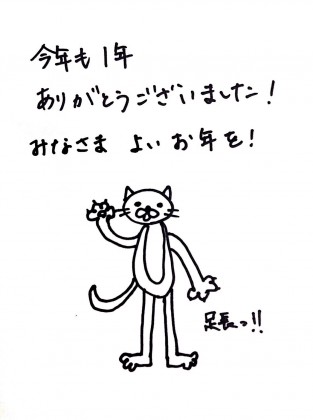 今年も1年
ありがとうございました!
みなさま よい お年を!
足長っ!!